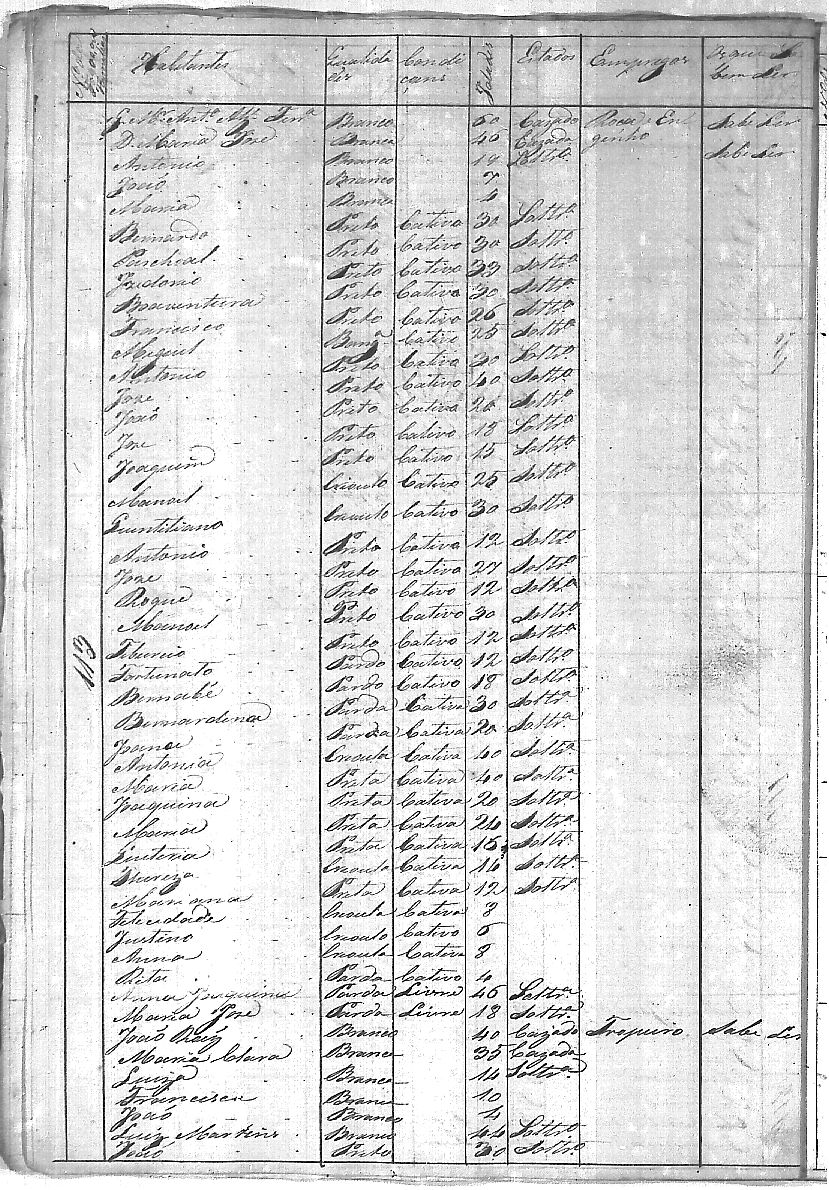 Habitantes Qualidades Condicans Idades Estados Empregos Os que Sabem Ler
G. Mr. Anto. Ml. Ferra. Branco 60 Cazado Roca e Engenho Sabe Ler
D. Maria Joze Branca 46 Cazada
Antonio Branco 19 Soltro. Sabe Ler
João Branco 7
Maria Branca 4
Bernardo Preto Cativo 30 Soltro.
Paschoal Preto Cativo 30 Soltro.
Fredonio Preto Cativo 33 Soltro.
Boaventura Preto Cativo 30 Soltro.
Francisco Preto Cativo 26 Soltro.
Miguel Cativo 25 Soltro.
Antonio Preto Cativo 30 Soltro.
Joze Preto Cativo 40 Soltro.
João Preto Cativo 20 Soltro.
Joze Preto Cativo 18 Soltro.
Joaquim Preto Cativo 15 Soltro.
Manoel Crioulo Cativo 25 Soltro.
Quintiliano Crioulo Cativo 30 Soltro.
Antonio Preto Cativo 12 Soltro.
Joze Preto Cativo 27 Soltro.
Roque Preto Cativo 12 Soltro.
Manoel Preto Cativo 30 Soltro.
113
Tiburcio Preto Cativo 12 Soltro.
Fortunato Pardo Cativo 12 Soltro.
Bernabé Pardo Cativo 18 Soltro.
Bernardina Parda Cativa 30 Soltra.
Joana Parda Cativa 20 Soltra.
Antonia Crioula Cativa 40 Soltra.
Maria Preta Cativa 40 Soltra.
Joaquina Preta Cativa 20 Soltra.
Maria Preta Cativa 24 Soltra.
Quiteria Preta Cativa 15 Soltra.
Thereza Crioula Cativa 14 Soltra.
Mariana Preta Cativa 12 Soltra.
Felicidade Crioula Cativa 8
Justino Crioulo Cativo 6
Anna Crioula Cativa 8
Rita Parda Cativo 4
Anna Joaquina Parda Livre 46 Soltra.
Maria Joze Parda Livre 18 Soltra.
João Branco 40 Cazado Tropeiro Sabe Ler
Maria Clara Branca 35 Cazada
Luiza Branca 14 Soltra.
Francisca Branca 10
João Branco 4
Luiz Martins Branco 44 Soltro.
João Preto 30 Soltro.